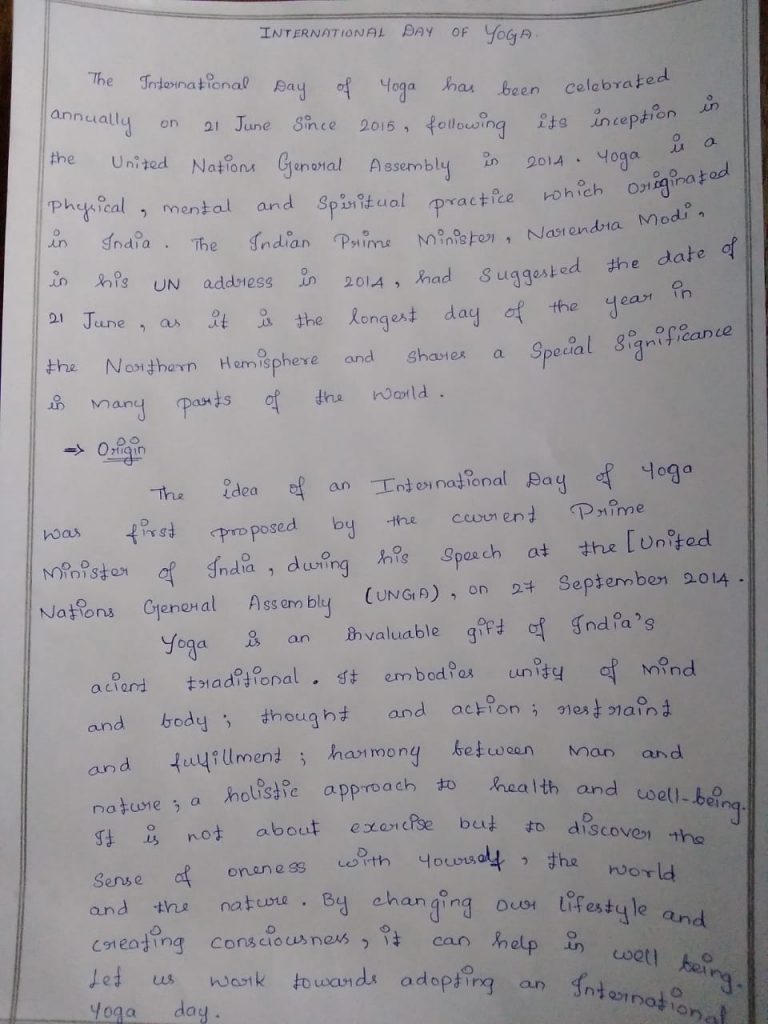 INTERNATIONAL DAY OF YOGA.
The International Day of Yoga has been celebrated
annually on 21 June Since 2015, following its inception in
the United Nations General Assembly in 2014. Yoga is a
physical, mental and Spiritual practice which originated
in India. The Indian Prime Minister, Narendra Modi,
in his UN address in 2014, had Suggested the date of
21 June, as it is the longest day of the year in
the Northern Hemisphere and shares a Special Significance
in many parts of the world.
⇒ Origin
The idea of an International Day of Yoga
was first proposed by the current Prime
Minister of India, during his Speech at the [United
Nations General Assembly (UNGA), on 27 September 2014.
Yoga is an invaluable gift of India's
acient traditional. It embodies unity of mind
and body; thought and action; restraint
and fulfillment; harmony between man and
nature; a holistic approach to health and well-being.
It is not about exercise but to discover the
Sense of oneness with yourself, the world
and the nature. By changing our lifestyle and
creating consciousness, it can help in well being.
Let us work towards adopting an International
Yoga day.